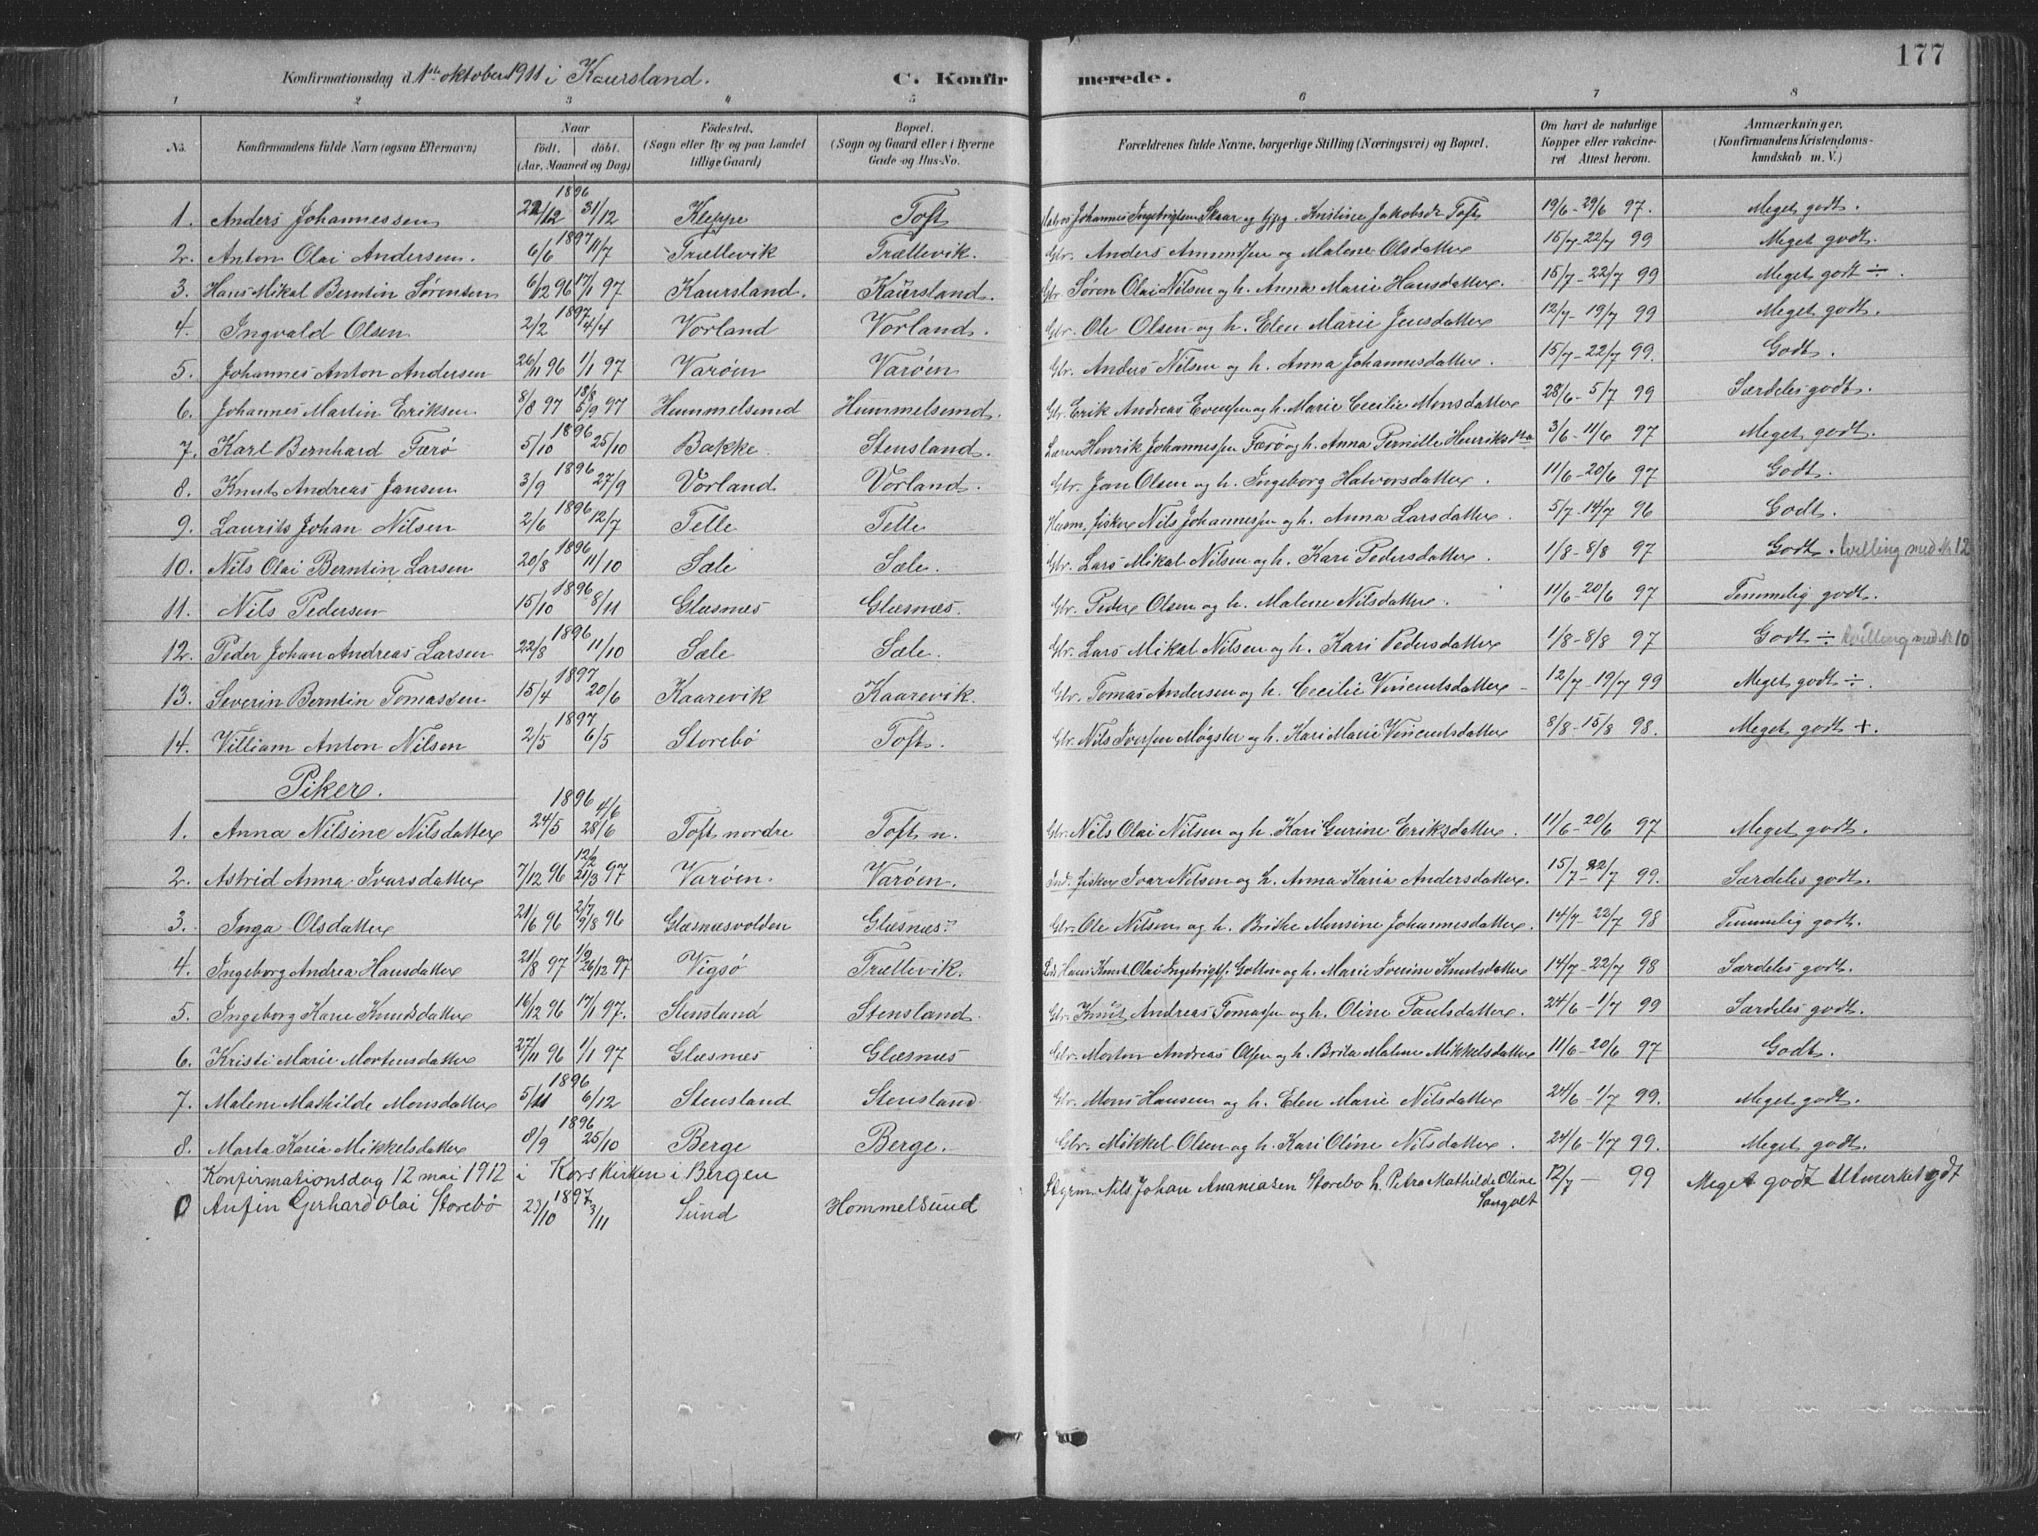 177
Konfirmationsdag d. 1ste oktober 1911 i Kaursland. C. Konfirmerede.
1 2 3 4 5 6 7 8
No. Konfirmandens fulde Navn (ogsaa Efternavn) Naar født. døbt. (Aar, Maaned og Dag) Fødested. (Sogn eller By og paa Landet tillige Gaard) Bopæl. (Sogn og Gaard eller i Byerne Gade- og Hus-No. Forældrenes fulde Navne, borgerlige Stilling (Næringsvei) og Bopæl. Om havt de naturlige Kopper eller vakcineret Attest herom. Anmærkninger, (Konfirmandens Kristendomskundskab m. V.)
1. Anders Johannessen 1896 22/12 31/12 Kleppe Toft Johannes Ingebrigtsen Skaar og Kristine Jakobsdr Toft 19/6 - 29/6 97. Meget godt.
2. Anton Olai Andersen. 1897 6/6 11/7 Trællevik Trællevik. Gbr. Anders Amundsen og Malene Olsdatter 15/7 - 22/7 99 Meget godt.
3. Hans Mikal Berntin Sørensen 6/12 96 17/1 97 Kaursland. Kaursland. Gbr. Søren Olai Nilsen og h. Anna Marie Hansdatter. 15/7 - 22/7 99 Meget godt ÷.
4. Ingvald Olsen 1897 2/2 4/4 Vorland Vorland. Gbr. Ole Olsen og h. Elen Marie Jensdatter 12/7 - 19/7 99 Meget godt.
5. Johannes Anton Andersen 26/11 96 1/1 97 Varøen Varøen Gbr. Anders Nilsen og h. Anna Johannesdatter. 15/7 - 22/7 99. Godt.
6. Johannes Martin Eriksen 8/8 97 18/8 5/9 97 Hummelsund Hummelsund. Gbr. Erik Andreas Evensen og h. Marie Cecilie Monsdatter 28/6 - 5/7 99 Særdeles godt.
7. Karl Bernhard Færø 1896 5/10 25/10 Bakke Stensland. Lærer Henrik Johannessen Færø og h. Anna Pernille Henriksdtr 3/6 - 11/6 97 Meget godt.
8. Knut Andreas Jansen 1896 3/9 27/9 Vorland Vorland. Gbr. Jan Olsen og h. Ingeborg Halvorsdatter. 11/6 - 20/6 97 Godt.
9. Laurits Johan Nilsen 1896 2/6 12/7 Telle Telle Husm, fisker Nils Johannessen og h. Anna Larsdatter. 5/7 - 14/7 96 Godt.
10. Nils Olai Berntin Larsen 1896 20/8 11/10 Sæle Sæle. Gbr. Lars Mikal Nilsen og h. Kari Pedersdatter. 1/8 - 8/8 97 Godt. tvilling med Nr 12
11. Nils Pedersen 1896 15/10 8/11 Glæsnæs Glæsnæs. Gbr. Peder Olsen og h. Malene Nilsdatter. 11/6 - 20/6 97 Temmelig godt.
12. Peder Johan Andreas Larsen 1896 22/8 11/10 Sæle Sæle. Gbr. Lars Mikal Nilsen og h. Kari Pedersdatter 1/8 - 8/8 97 Godt ÷ tvilling med Nr 10
13. Severin Berntin Tomassen 1897 15/4 20/6 Kaarevik Kaarevik. Gbr. Tomas Andersen og h. Cecilie Vincentsdatter 12/7 - 19/7 99 Meget godt ÷.
14. Villiam Anton Nilsen 1897 2/5 6/5 Storebø Toft. Gbr. Nils Iversen Møgster og h. Kari Marie Vincentsdatter 8/8 - 15/8 98. Meget godt +.
Piker.
1. Anna Nilsine Nilsdatter 1896 24/5 4/6 28/6 Toft nordre Toft n. Gbr. Nils Olai Nilsen og h. Kari Gurine Eriksdatter. 11/6 - 20/6 97 Meget godt.
2. Astrid Anna Ivarsdatter 7/12 96 12/2 21/3 97 Varøen. Varøen. Ind. fisker Ivar Nilsen og h. Anna Karia Andersdatter. 15/7 - 22/7 99. Særdeles godt.
3. Inga Olsdatter 21/6 96 2/7 9/8 96 Glæsnæsvolden Glæsnæs. Gbr. Ole Nilsen og h. Britke Monsine Johannesdatter. 14/7 - 22/7 98 Temmelig godt.
4. Ingeborg Andrea Hansdatter 21/8 97 26/12 97 Vigsø Trællevik. Hans Knut Olai Ingebrigts. og h. Marie Iverine Knutsdatter 14/7 - 22/7 98 Særdeles godt.
5. Ingeborg Karie Knutsdatter 16/12 96 17/1 97. Stensland Stensland. Gbr. Knut Andreas Tomassen og h. Oline Paulsdatter 24/6 - 1/7 99 Særdeles godt.
6. Kristi Marie Mortensdatter 27/11 96 1/1 97 Glæsnæs Glæsnæs Gbr. Morten Andreas Olsen og h. Brita Malene Mikkelsdatter 11/6 - 20/6 97 Godt.
7. Malene Mathilde Monsdatter 1896 5/11 6/12 Stensland Stensland Gbr. Mons Hansen og h. Elen Marie Nilsdatter 24/6 - 1/7 99. Meget godt.
8. Marta Karia Mikkelsdatter 1896 8/9 25/10 Berge Berge. Gbr. Mikkel Olsen og h. Kari Oline Nilsdatter. 24/6 - 1/7 99. Meget godt.
Konfirmationsdag 12 mai 1912 i Korskirken i Bergen
0 Anfin Gerhard Olai Storebø 1897 23/10 3/11 Sund Hommelsund Styrm. Nils Johan Ananiasen Storebø h. Petra Mathilde Oline Sangolt 12/7 - 99 Meget godt Utmerket godt